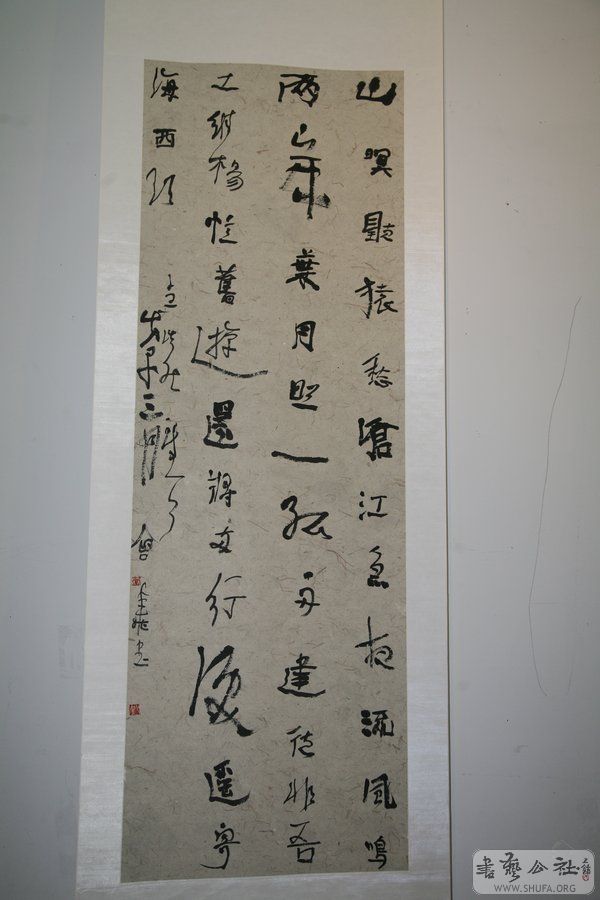 山暝聽猿愁滄江急夜流風鳴
兩岸葉月照一孤舟建德非吾
土維楊憶舊遊還將兩行淚遙寄
海西頭
三月
書
書藝公社
WWW.SHUFA.ORG